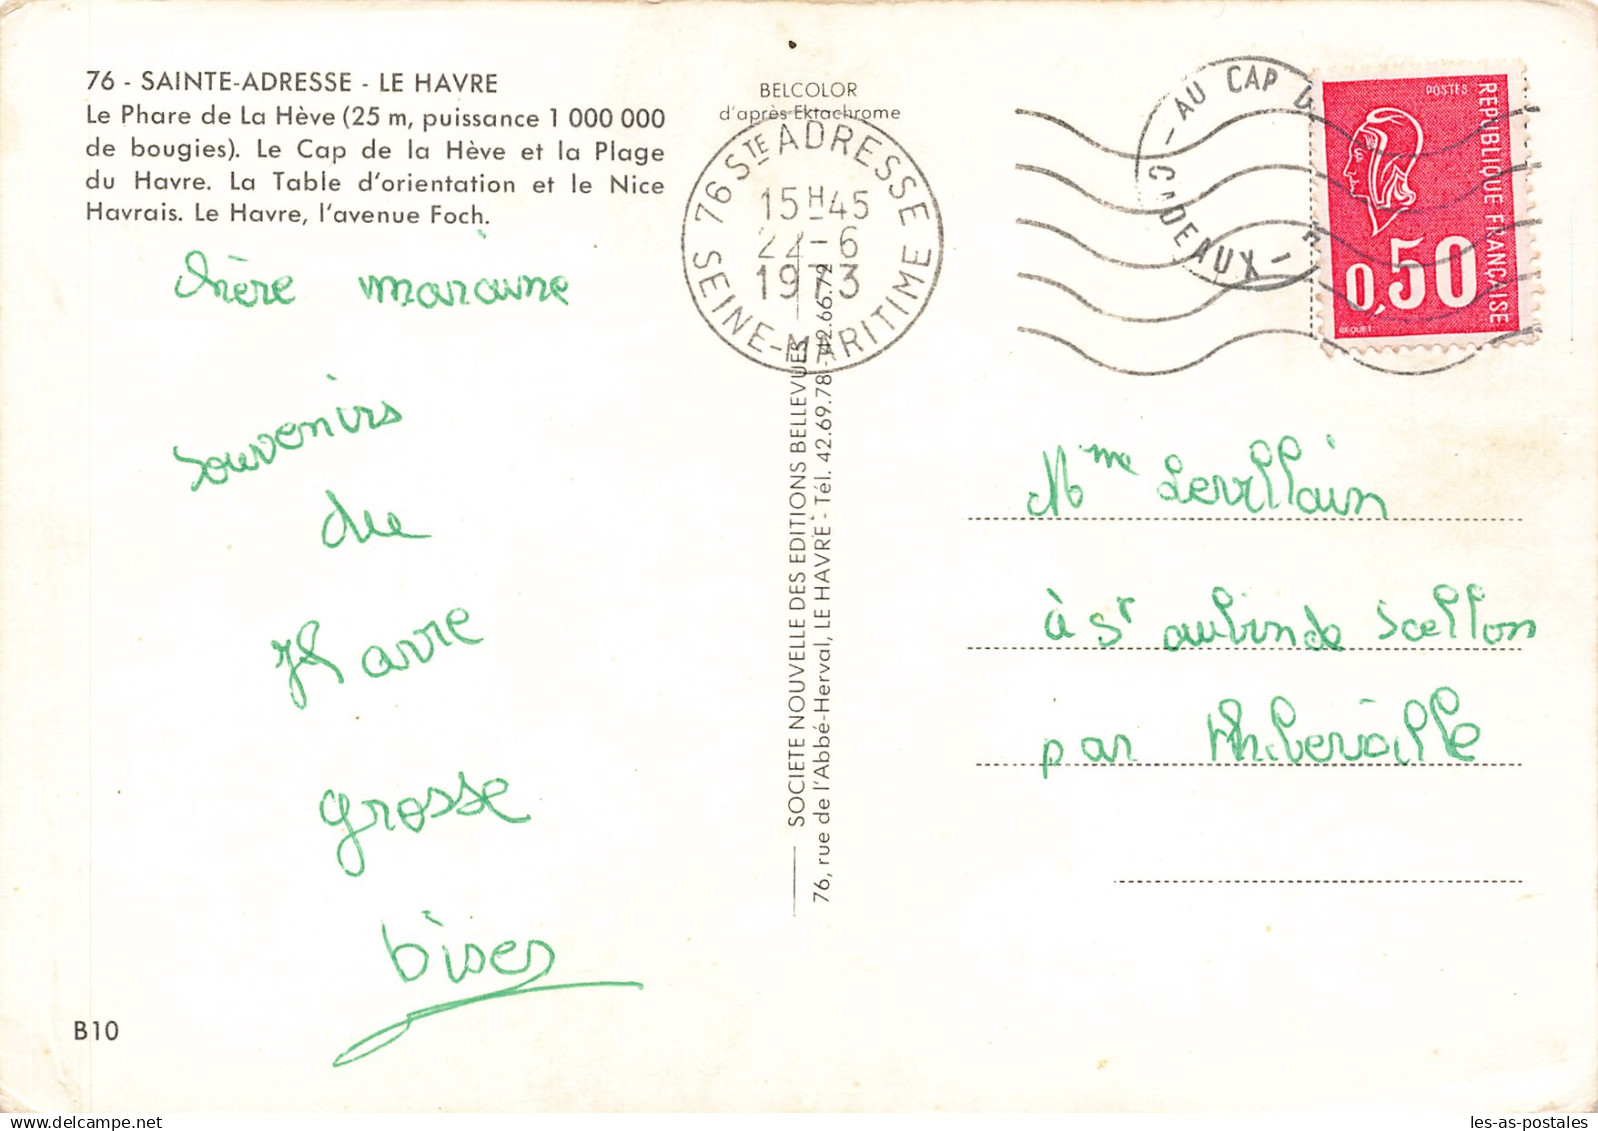 76 - SAINTE-ADRESSE - LE HAVRE
Le Phare de La Hève (25 m, puissance 1 000 000
de bougies). Le Cap de la Hève et la Plage
du Havre. La Table d'orientation et le Nice
Havrais. Le Havre, l'avenue Foch.
chère maraine
souvenirs
du
Havre
grosse
bises
B10
BELCOLOR
d'après Ektachrome
76 STE ADRESSE
15H45
22-6
1973
SEINE-MARITIME
SOCIETE NOUVELLE DES EDITIONS BELLEVUES
76, rue de l'Abbé-Herval, LE HAVRE - Tél. 42.69.78 - 42.66.72
- AU CAP
DEAUX -
POSTES
REPUBLIQUE FRANÇAISE
0,50
BEQUET
Mme Levillain
à St aubin de Scellon
par Thiberville
les-as-postales